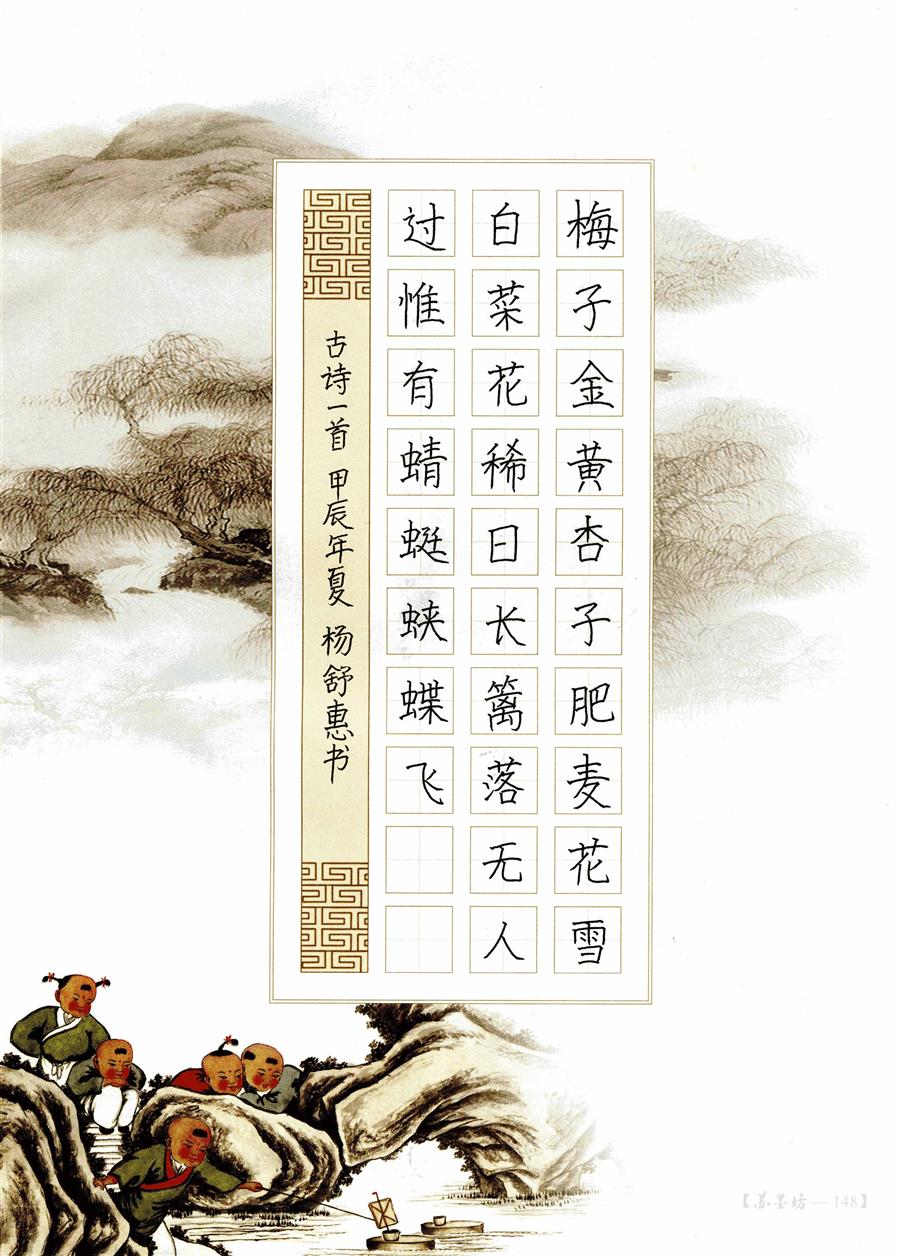 梅子金黄杏子肥麦花雪
白菜花稀日长篱落无人
过惟有蜻蜓蛱蝶飞
古诗一首 甲辰年夏 杨舒惠书
【苏墨坊—148】